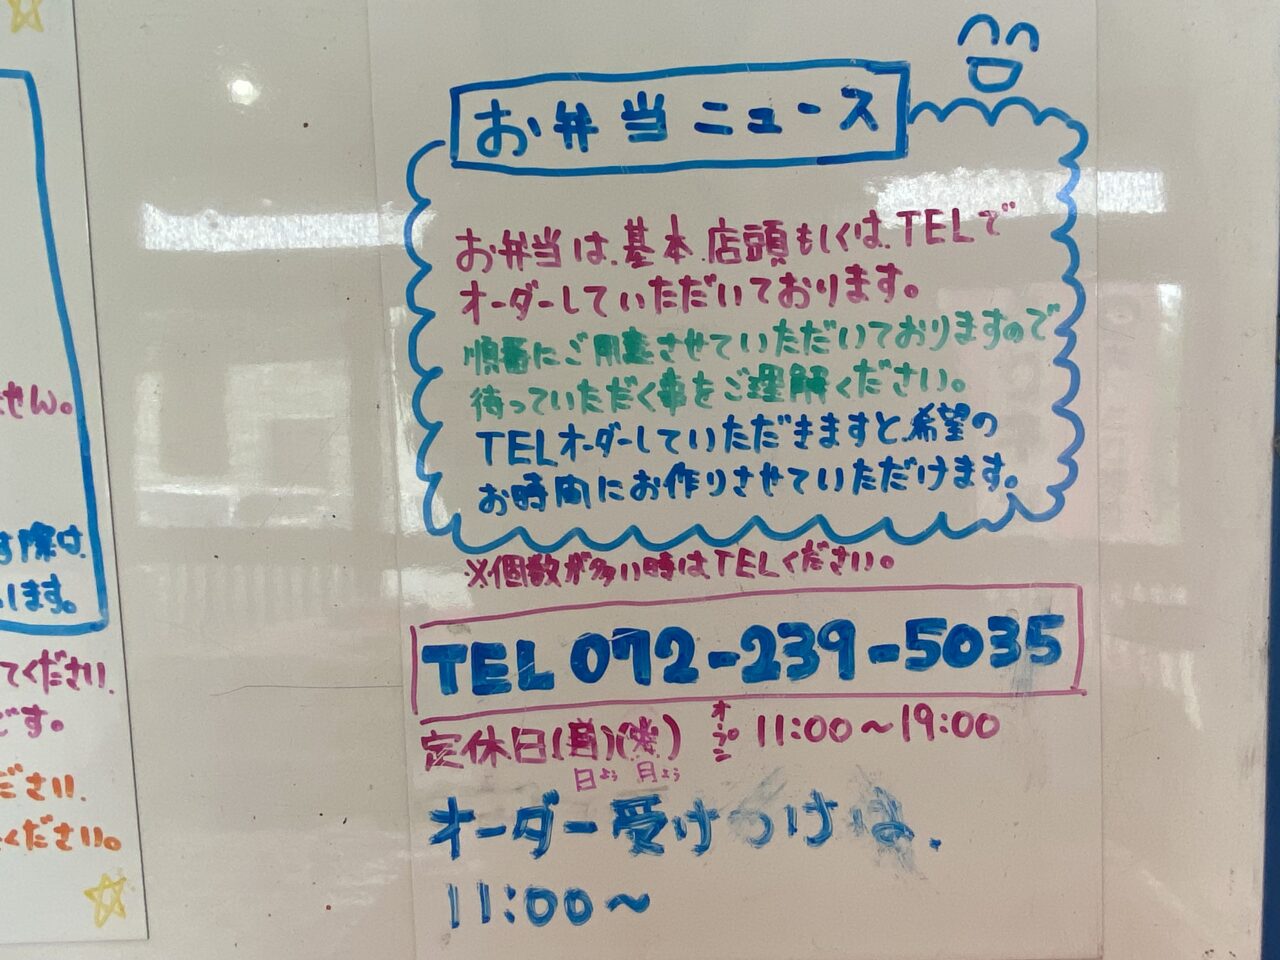 お弁当ニュース
お弁当は、基本、店頭もしくは、TELで
オーダーしていただいております。
順番にご用意させていただいておりますので
待っていただく事をご理解ください。
TELオーダーしていただきますと、希望の
お時間にお作りさせていただけます。
※個数が多い時はTELください。
TEL 072-239-5035
定休日( )( ) オープン 11:00～19:00
日よう 月よう
オーダー受けつけは、
11:00～
せん。
す際は、
します。
てください、
です。
ださい、
ください。